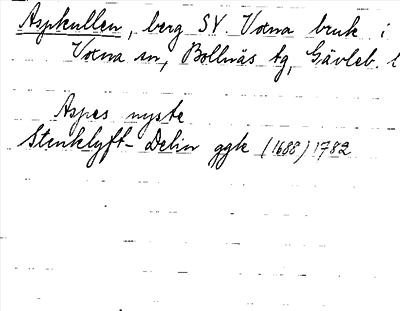 Aspkullen, berg SV Voxna bruk i
Voxna sn, Bollnäs tg, Gävleb. l
Aspes nyste
Stenklyft-Delin ggk (1688) 1782